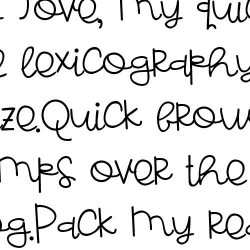 love, my qui
e lexicography
ze.Quick brow
mps over the
og.Pack my re